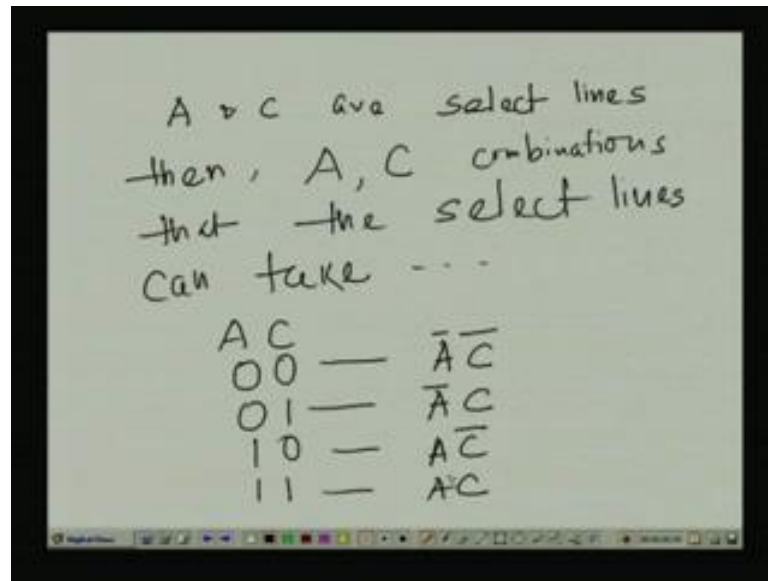 A & C are select lines
then, A, C combinations
that the select lines
can take ---
A C
0 0 — A̅ C̅
0 1 — A̅ C
1 0 — A C̅
1 1 — A C